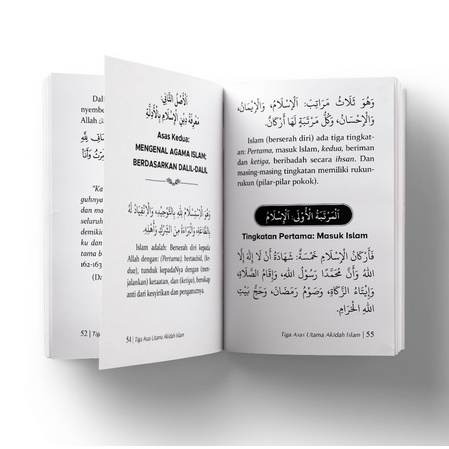 Dali
nyemb
Allah
"Ka
guhnya
dan ma
seluruh
demikia
ku dan
mati
162-163
(Da
52 | Tiga
الأَصْلُ الثَّانِي
مَعْرِفَةُ دِيْنِ الْإِسْلَامِ بِالْأَدِلَّةِ
Asas Kedua:
MENGENAL AGAMA ISLAM;
BERDASARKAN DALIL-DALIL
وَهُوَ الْاِسْتِسْلَامُ لِلّٰهِ بِالتَّوْحِيْدِ، وَالْاِنْقِيَادُ لَهُ
بِالطَّاعَةِ، وَالْبَرَاءَةُ مِنَ الشِّرْكِ وَأَهْلِهِ.
Islam adalah: Berserah diri kepada
Allah dengan: (Pertama) bertauhid, (ke-
dua), tunduk kepadaNya dengan (men-
jalankan) ketaatan, dan (ketiga), bersikap
anti dari kesyirikan dan penganutnya.
54 | Tiga Asas Utama Akidah Islam
وَهُوَ ثَلَاثُ مَرَاتِبَ: اَلْإِسْلَامُ، وَالْإِيْمَانُ،
وَالْإِحْسَانُ، وَكُلُّ مَرْتَبَةٍ لَهَا أَرْكَانٌ.
Islam (berserah diri) ada tiga tingkat-
an: Pertama, masuk Islam, kedua, beriman
dan ketiga, beribadah secara ihsan. Dan
masing-masing tingkatan memiliki rukun-
rukun (pilar-pilar pokok).
اَلْمَرْتَبَةُ الْأُوْلَى: اَلْإِسْلَامُ
Tingkatan Pertama: Masuk Islam
فَأَرْكَانُ الْإِسْلَامِ خَمْسَةٌ: شَهَادَةُ أَنْ لَا إِلٰهَ إِلَّا
اللهُ وَأَنَّ مُحَمَّدًا رَسُوْلُ اللهِ، وَإِقَامُ الصَّلَاةِ،
وَإِيْتَاءُ الزَّكَاةِ، وَصَوْمُ رَمَضَانَ، وَحَجُّ بَيْتِ
اللهِ الْحَرَامِ.
Tiga Asas Utama Akidah Islam | 55